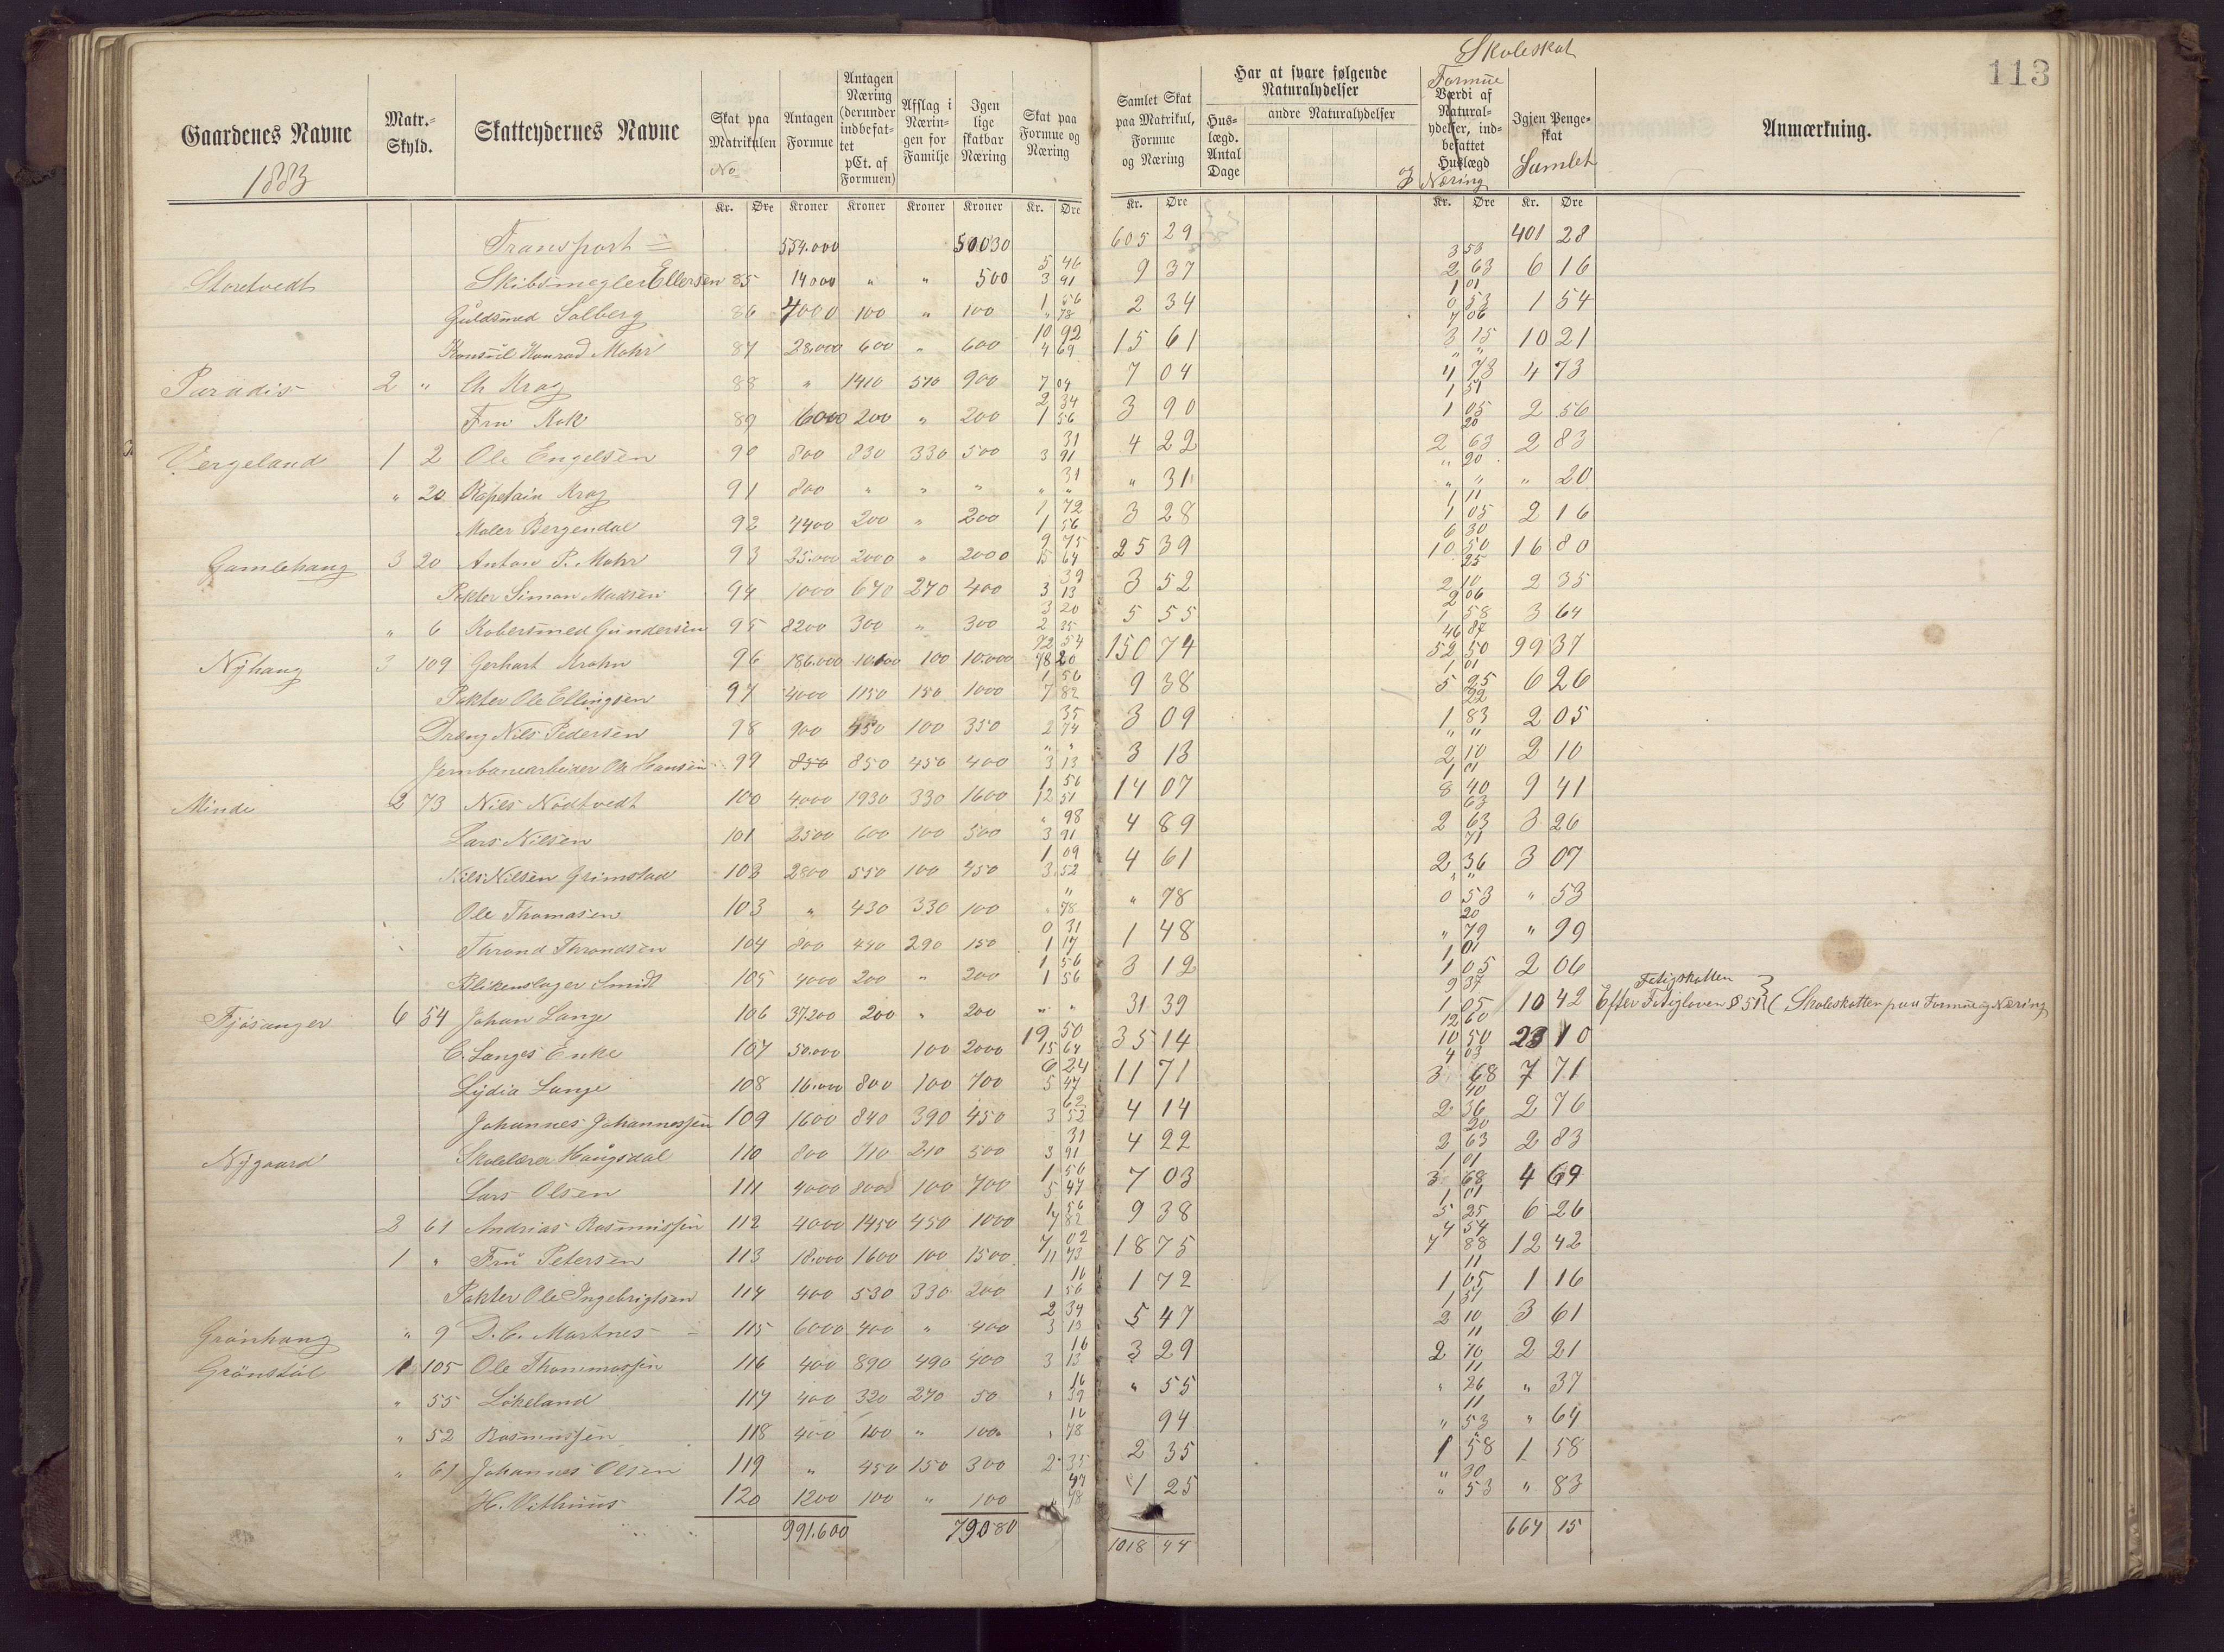 Skoleskat
113
Gaardenes Navne
1883
Matr.=Skyld.
Skatteydernes Navne
Skat paa Matrikulen
No
Antagen Formue
Antagen Næring (derunder indbefattet pCt. af Formuen)
Afslag i Næringen for Familje
Igen lige skatbar Næring
Skat paa Formue og Næring
Samlet Skat paa Matrikul, Formue og Næring
Har at svare følgende Naturalydelser
Huslægd. Antal Dage
andre Naturalydelser
Formue
Værdi af Naturalydelser, indbefattet Huslægd
og Næring
Igjen Pengeskat
Samlet
Anmærkning.
Kr. Øre Kroner Kroner Kroner Kroner Kr. Øre Kr. Øre Kr. Øre Kr. Øre
Transport = 554.000 50030 605 29 401 28
Storetvedt Skibsmegler Ellersen 85 14000 " " 500 5 46 3 91 9 37 3 53 2 63 6 16
Guldsmed Solberg 86 4000 100 " 100 1 56 " 78 2 34 1 01 0 53 1 54
Konsul Konrad Mohr 87 28.000 600 " 600 10 92 4 69 15 61 7 06 3 15 10 21
Paradis 2 " Ch Krag 88 " 1410 510 900 7 04 7 04 " " 4 73 4 73
Fru Rok 89 6000 200 " 200 2 34 1 56 3 90 1 51 1 05 2 56
Vergeland 1 2 Ole Engelsen 90 800 830 330 500 31 3 91 4 22 20 2 63 2 83
" 20 Kaptain Krag 91 800 " " " 31 " " " 31 20 " " " 20
Maler Bergendal 92 4400 200 " 200 1 72 1 56 3 28 1 11 1 05 2 16
Gamlehaug 3 20 Anton P. Mohr 93 25.000 2000 " 2000 9 75 15 64 25 39 6 30 10 50 16 80
Pakter Simon Madsen 94 1000 670 270 400 39 3 13 3 52 25 2 10 2 35
" 6 Kobersmed Gundersen 95 8200 300 " 300 3 20 2 35 5 55 2 06 1 58 3 64
Nyhaug 3 109 Gerhart Krohn 96 186.000 10100 100 10.000 72 54 78 20 150 74 46 87 52 50 99 37
Pakter Ole Ellingsen 97 4000 1150 150 1000 1 56 7 82 9 38 1 01 5 25 6 26
Dreng Nils Pedersen 98 900 450 100 350 35 2 74 3 09 22 1 83 2 05
Jernbanearbeider Ole Hansen 99 850 850 450 400 " " 3 13 3 13 " " 2 10 2 10
Minde 2 73 Nils Nödtvedt 100 4000 1930 330 1600 1 56 12 51 14 07 1 01 8 40 9 41
Lars Nilsen 101 2500 600 100 500 " 98 3 91 4 89 63 2 63 3 26
Nils Nilsen Grimstad 102 2800 550 100 450 1 09 3 52 4 61 71 2 36 3 07
Ole Thomasen 103 " 430 330 100 " " 78 " 78 " " 0 53 " 53
Thrond Throndsen 104 800 440 290 150 0 31 1 17 1 48 20 " 79 " 99
Blikenslager Smidt 105 4000 200 " 200 1 56 1 56 3 12 1 01 1 05 2 06
Fjösanger 6 54 Johan Lange 106 37200 200 " 200 " " 31 39 9 37 1 05 10 42 Efter Fatigloven § 51 { Fatigskatten } ( Skoleskatten paa Formue og Næring
C. Langes Enke 107 50.000 100 2000 19 50 15 64 35 14 12 60 10 50 23 10
Lydia Lange 108 16.000 800 100 700 6 24 5 47 11 71 4 03 3 68 7 71
Johannes Johannessen 109 1600 840 390 450 62 3 52 4 14 40 2 36 2 76
Nygaard Skolelærer Haugsdal 110 800 710 210 500 31 3 91 4 22 20 2 63 2 83
Lars Olsen 111 4000 800 100 700 1 56 5 47 7 03 1 01 3 68 4 69
2 61 Andrias Rasmussen 112 4000 1450 450 1000 1 56 7 82 9 38 1 01 5 25 6 26
1 " Fru Petersen 113 18.000 1600 100 1500 7 02 11 73 18 75 4 54 7 88 12 42
Pakter Ole Ingebrigtsen 114 400 530 330 200 16 1 56 1 72 11 1 05 1 16
Grönhaug " 9 D. C. Martnes 115 6000 400 " 400 2 34 3 13 5 47 1 51 2 10 3 61
Grönstöl 1 105 Ole Thommassen 116 400 890 490 400 16 3 13 3 29 11 2 10 2 21
" 55 Lökeland 117 400 320 270 50 16 " 39 " 55 11 " 26 " 37
" 52 Rasmussen 118 400 100 " 100 16 " 78 94 11 " 53 " 64
" 61 Johannes Olsen 119 " 450 150 300 2 35 2 35 1 58 1 58
H. Vithuus 120 1200 100 " 100 47 " 78 1 25 " 30 " 53 " 83
991.600 79080 1018 44 664 15